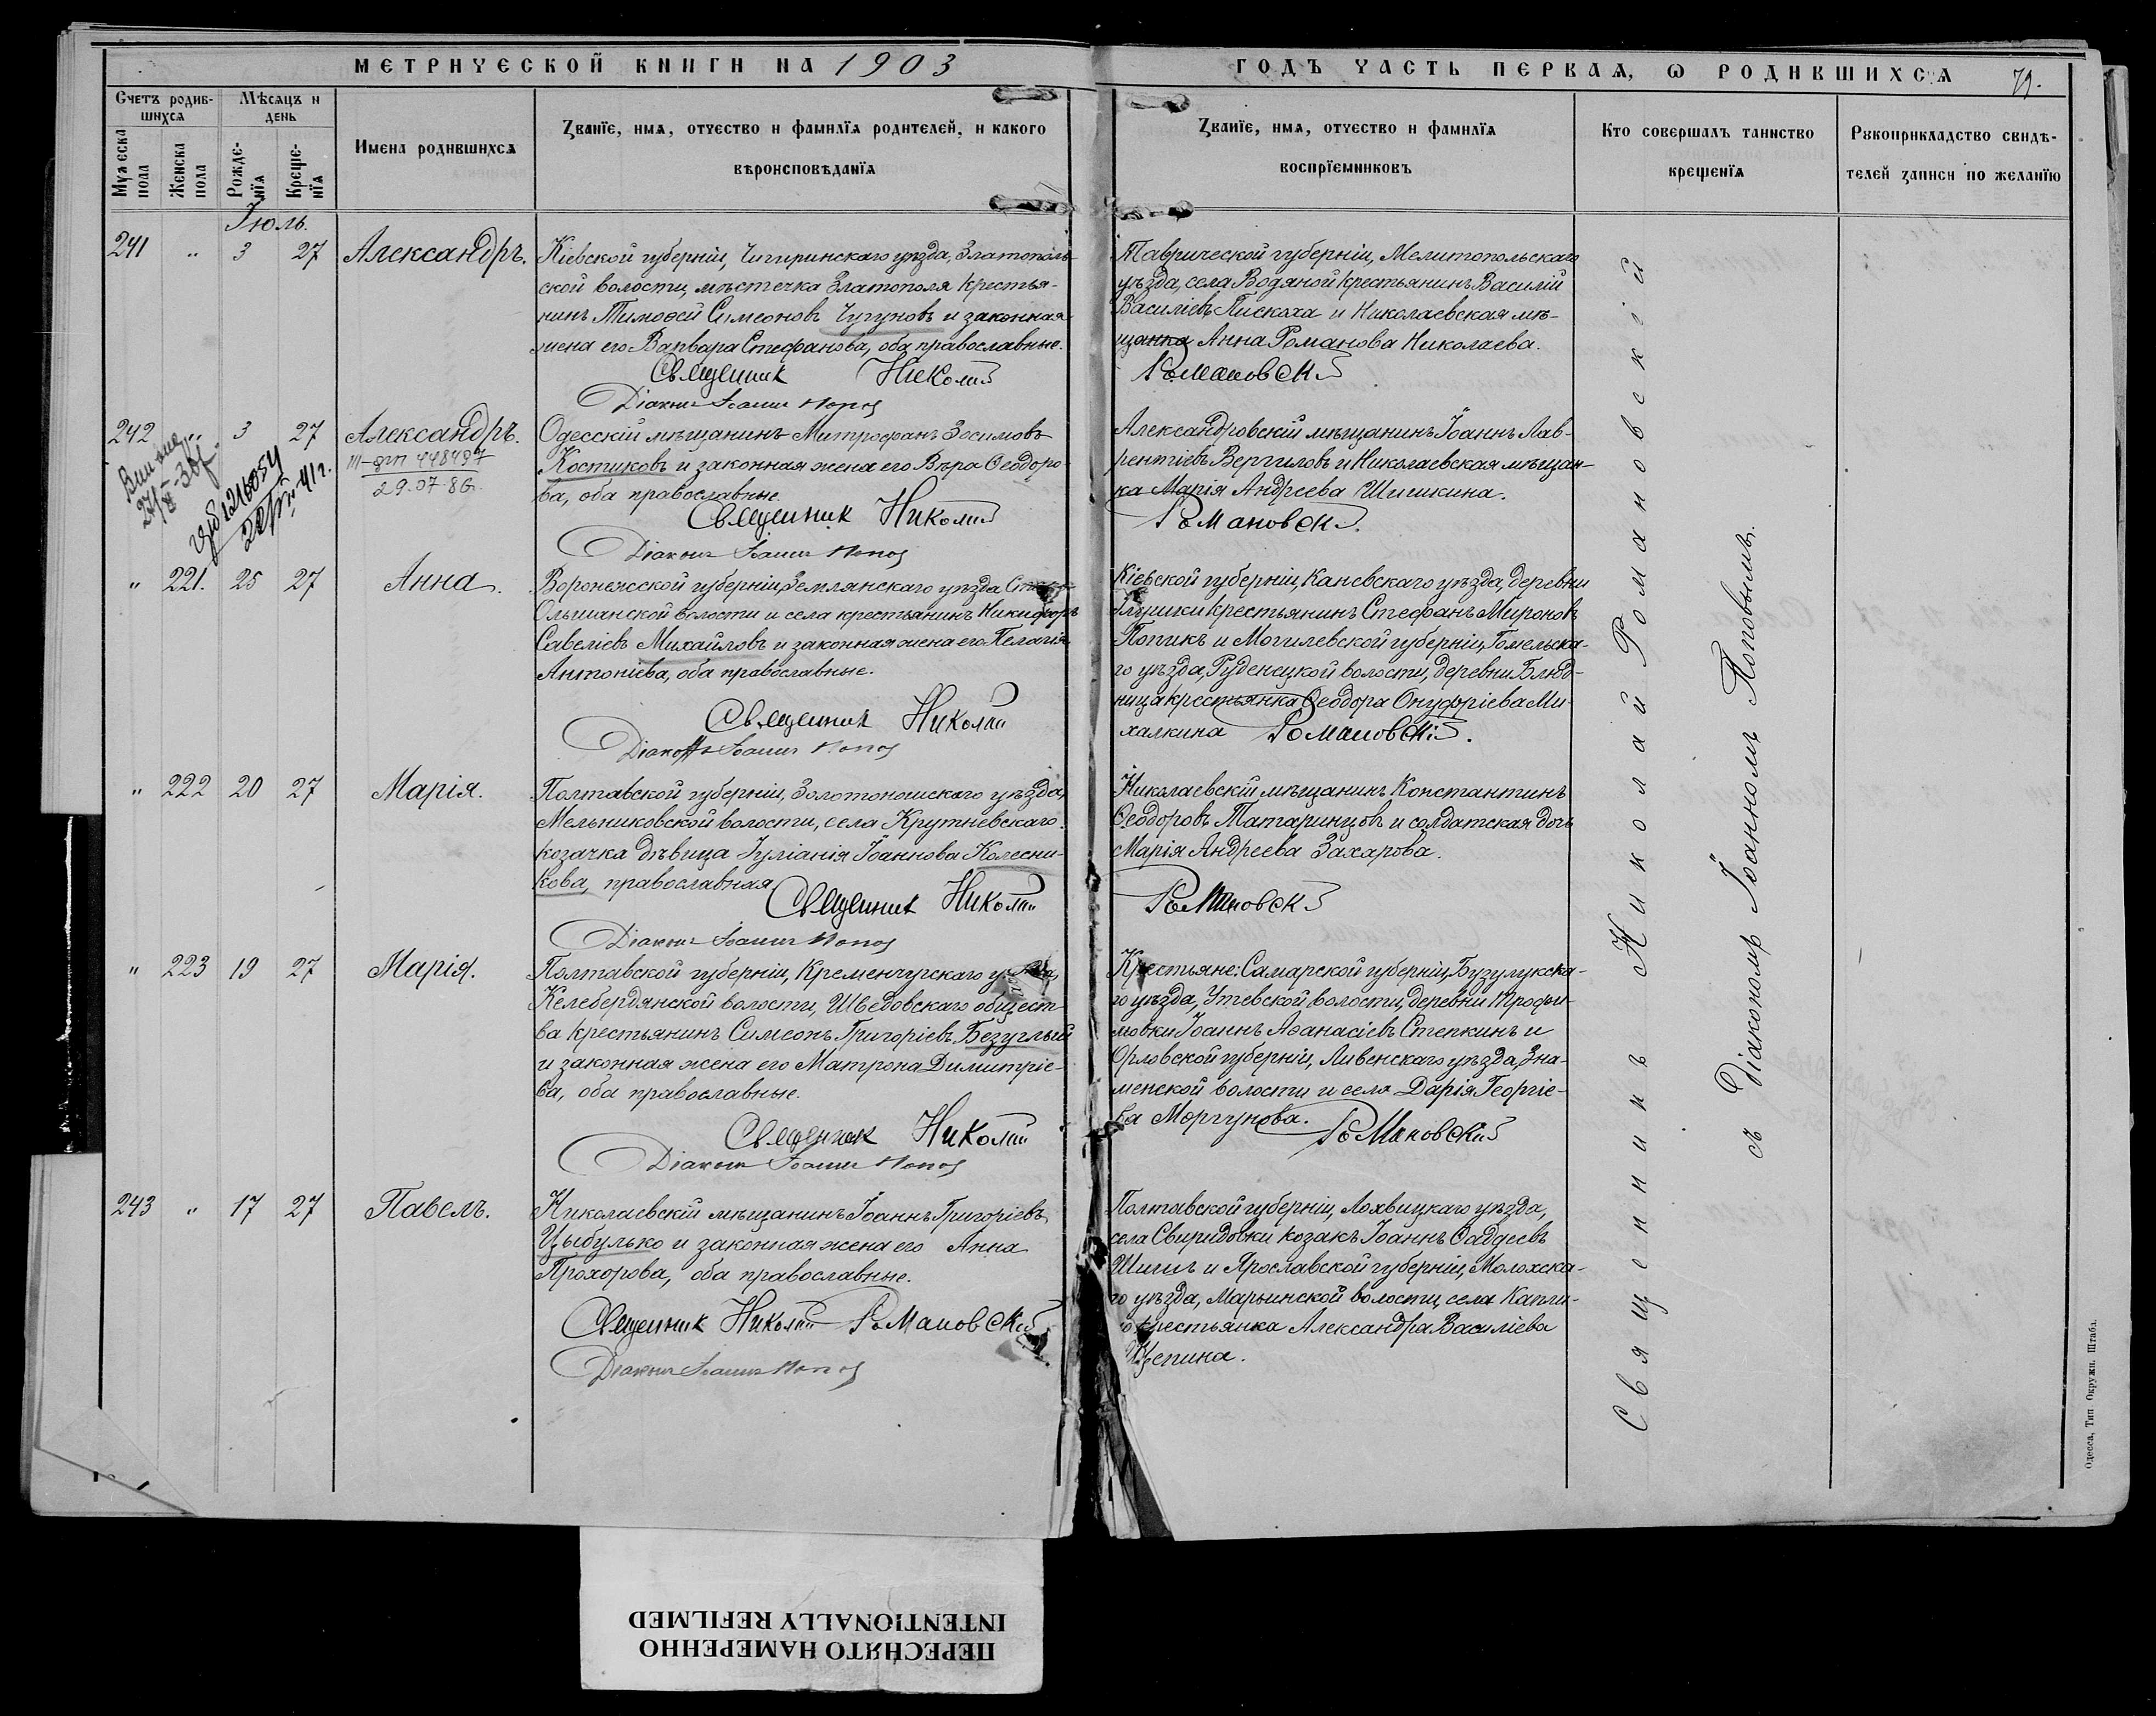 МЕТРИЧЕСКОЙ КНИГИ НА 1903
ГОДЪ ЧАСТЬ ПЕРВАЯ, Ѡ РОДИВШИХСЯ 79.
Счетъ родив-
шихся
Мѣсяцъ и
день
Мужеска
пола
Женска
пола
Рожде-
нїя
Креще-
нїя
Имена родившихся
Званїе, имя, отчество и фамилїя родителей, и какого
вѣроисповѣданїя
Званїе, имя, отчество и фамилїя
воспрїемниковъ
Кто совершалъ таинство
крещенїя
Рукоприкладство свидѣ-
телей записи по желанїю
Іюль.
241 " 3 27 Александръ.
Кіевской губерніи, Чигиринскаго уѣзда, Златополь-
ской волости, мѣстечка Златополя крестья-
нинъ Тимоѳей Симеоновъ Чугуновъ и законная
жена его Варвара Стефанова, оба православные.
Священник Николай
Діаконъ Іоаннъ Попов
Таврической губерніи, Мелитопольскаго
уѣзда, села Водяной крестьянинъ Василій
Василіевъ Пискоха и Николаевская мѣ-
щанка Анна Романова Николаева.
Романовскій
242 " 3 27 Александръ.
III-ЗП 448497
29.07.86г.
Одесскій мѣщанинъ Митрофанъ Зосимовъ
Костиковъ и законная жена его Вѣра Ѳеодоро-
ва, оба православные.
Священник Николай
Діаконъ Іоаннъ Попов
Александровскій мѣщанинъ Іоаннъ Лав-
рентіевъ Вергиловъ и Николаевская мѣщан-
ка Марія Андреева Шишкина.
Романовскій.
" 221. 25 27 Анна.
Воронежской губерніи, Землянскаго уѣзда
Ольшанской волости и села крестьянинъ Никифоръ
Савеліевъ Михайловъ и законная жена его Пелагія
Антоніева, оба православные.
Священник Николай
Діаконъ Іоаннъ Попов
Кіевской губерніи, Каневскаго уѣзда, деревни
крестьянинъ Стефанъ Мироновъ
Попикъ и Могилевской губерніи, Гомельска-
го уѣзда, Руденецкой волости, деревни Блюд-
ница крестьянка Ѳеодора Онуфріева Ми-
халкина Романовскій.
" 222 20 27 Марія.
Полтавской губерніи, Золотоношскаго уѣзда,
Мельниковской волости, села Крутневскаго
козачка дѣвица Іуліанія Іоаннова Колесни-
кова, православная
Священник Николай
Діаконъ Іоаннъ Попов
Николаевскій мѣщанинъ Константинъ
Ѳеодоровъ Татаринцовъ и солдатская дочь
Марія Андреева Захарова.
Романовскій
" 223 19 27 Марія.
Полтавской губерніи, Кременчугскаго уѣзда,
Келебердянской волости, Шведовскаго общест-
ва крестьянинъ Симеонъ Григоріевъ Безуглый
и законная жена его Матрона Димитріе-
ва, оба православные.
Священник Николай
Діаконъ Іоаннъ Попов
Крестьяне: Самарской губерніи, Бузулукска-
го уѣзда, Утевской волости, деревни Трофи-
мовки Іоаннъ Аѳанасіевъ Степкинъ и
Орловской губерніи, Ливенскаго уѣзда, Зна-
менской волости и села Дарія Георгіе-
ва Моргунова. Романовскій
243 " 17 27 Павелъ.
Николаевскій мѣщанинъ Іоаннъ Григоріевъ
Цыбулько и законная жена его Анна
Прохорова, оба православные.
Священник Николай Романовскій
Діаконъ Іоаннъ Попов
Полтавской губерніи, Лохвицкаго уѣзда,
села Свиридовки козакъ Іоаннъ Ѳаддеевъ
Шигиль и Ярославской губерніи, Молохска-
го уѣзда, Марьинской волости, села
крестьянка Александра Василіева
Щепина.
Священникъ Николай Романовскій
съ Діакономъ Іоанномъ Поповымъ.
Одесса, Тип Окружн. Штаба.
ПЕРЕСНЯТО НАМЕРЕННО
INTENTIONALLY REFILMED